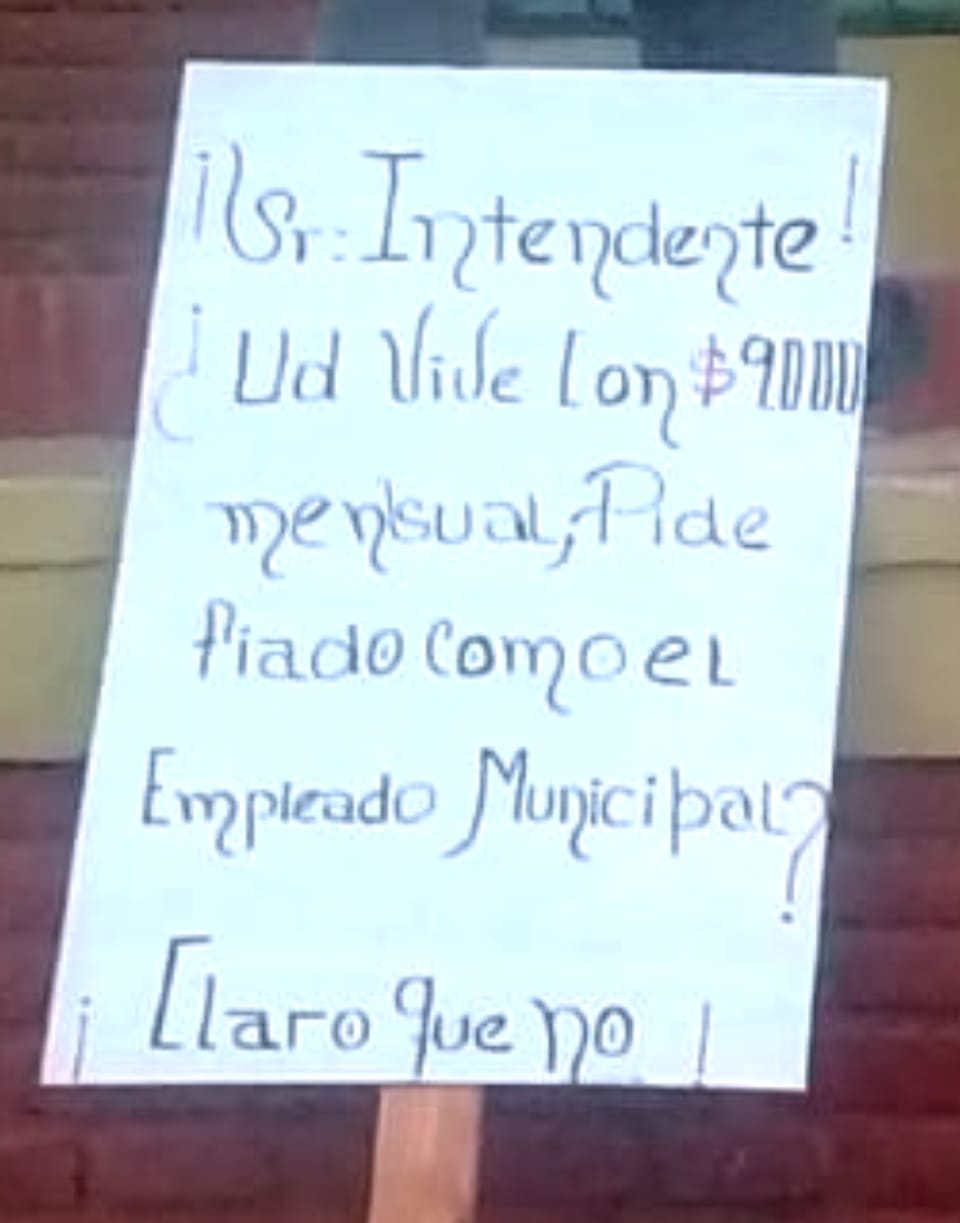 ¡Sr: Intendente!
¿Ud Vive Con $9000
mensual, Pide
fiado como el
Empleado Municipal?
¡Claro que no!